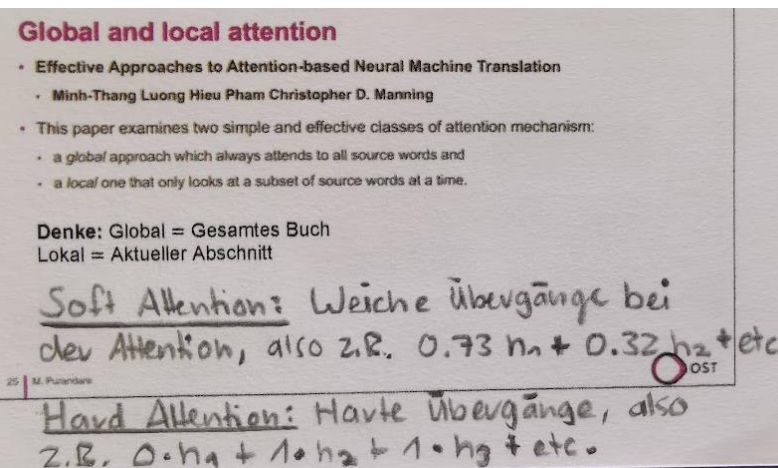 Global and local attention
• Effective Approaches to Attention-based Neural Machine Translation
• Minh-Thang Luong Hieu Pham Christopher D. Manning
• This paper examines two simple and effective classes of attention mechanism:
• a global approach which always attends to all source words and
• a local one that only looks at a subset of source words at a time.
Denke: Global = Gesamtes Buch
Lokal = Aktueller Abschnitt
Soft Attention: Weiche Übergänge bei
der Attention, also z.B. 0.73 h₁ + 0.32 h₂ + etc
OST
25 | M. Purandare
Hard Attention: Harte Übergänge, also
z.B. 0·h₁ + 1·h₂ + 1·h₃ + etc.